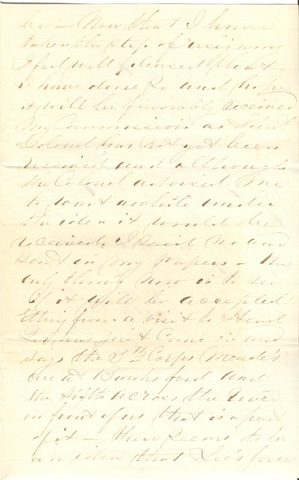 be — Now that I have
taken the step of resigning
I feel well pleased that it
is now done so and hope
it will be favorably received
My Commission as Lieut
Colonel has not yet been
received and although
the Colonel advised me
to wait awhile under
the idea it would be
received, I said no and
sent in my papers — the
only thing now is to see
if it will be accepted
from a visit to Head
Quarters just came in and
says the 5th Corps Meade's
are at Banks ford and
the Sixth across the river
in front of us that is a part
of it — there seems to be
an idea that Lee's force